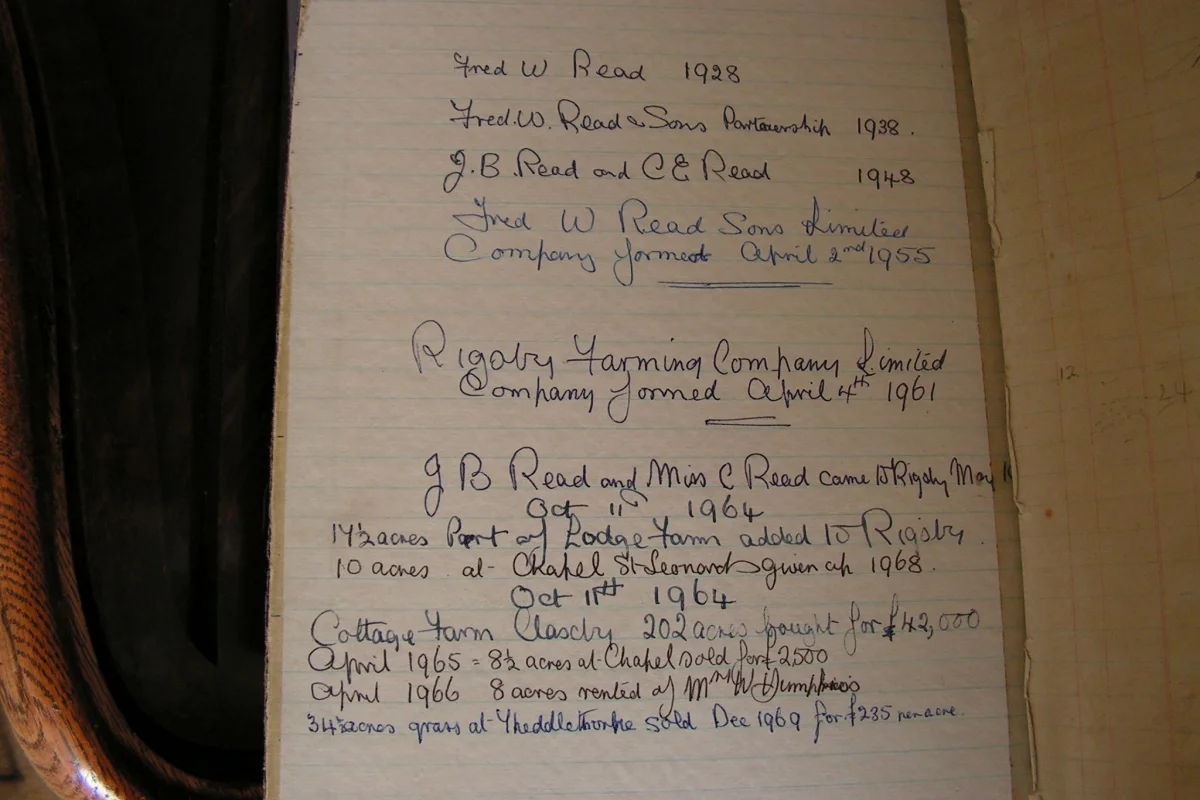 Fred W Read 1928
Fred. W. Read & Sons Partnership 1938.
J. B Read and C E Read 1948
Fred W Read Sons Limited
Company formed April 2nd 1955
Rigsby Farming Company Limited
Company formed April 4th 1961
J B Read and Miss C Read came to Rigsby May
Oct 11th 1964
17½ acres Part of Lodge Farm added to Rigsby.
10 acres at Chapel St Leonards given up 1968.
Oct 11th 1964
Cottage Farm Claxby 202 acres bought for £42,000
April 1965 = 8½ acres at Chapel sold for £2500
April 1966 8 acres rented of W Humphries
34½ acres grass at Theddlethorpe sold Dec 1969 for £235 per acre.
12
24